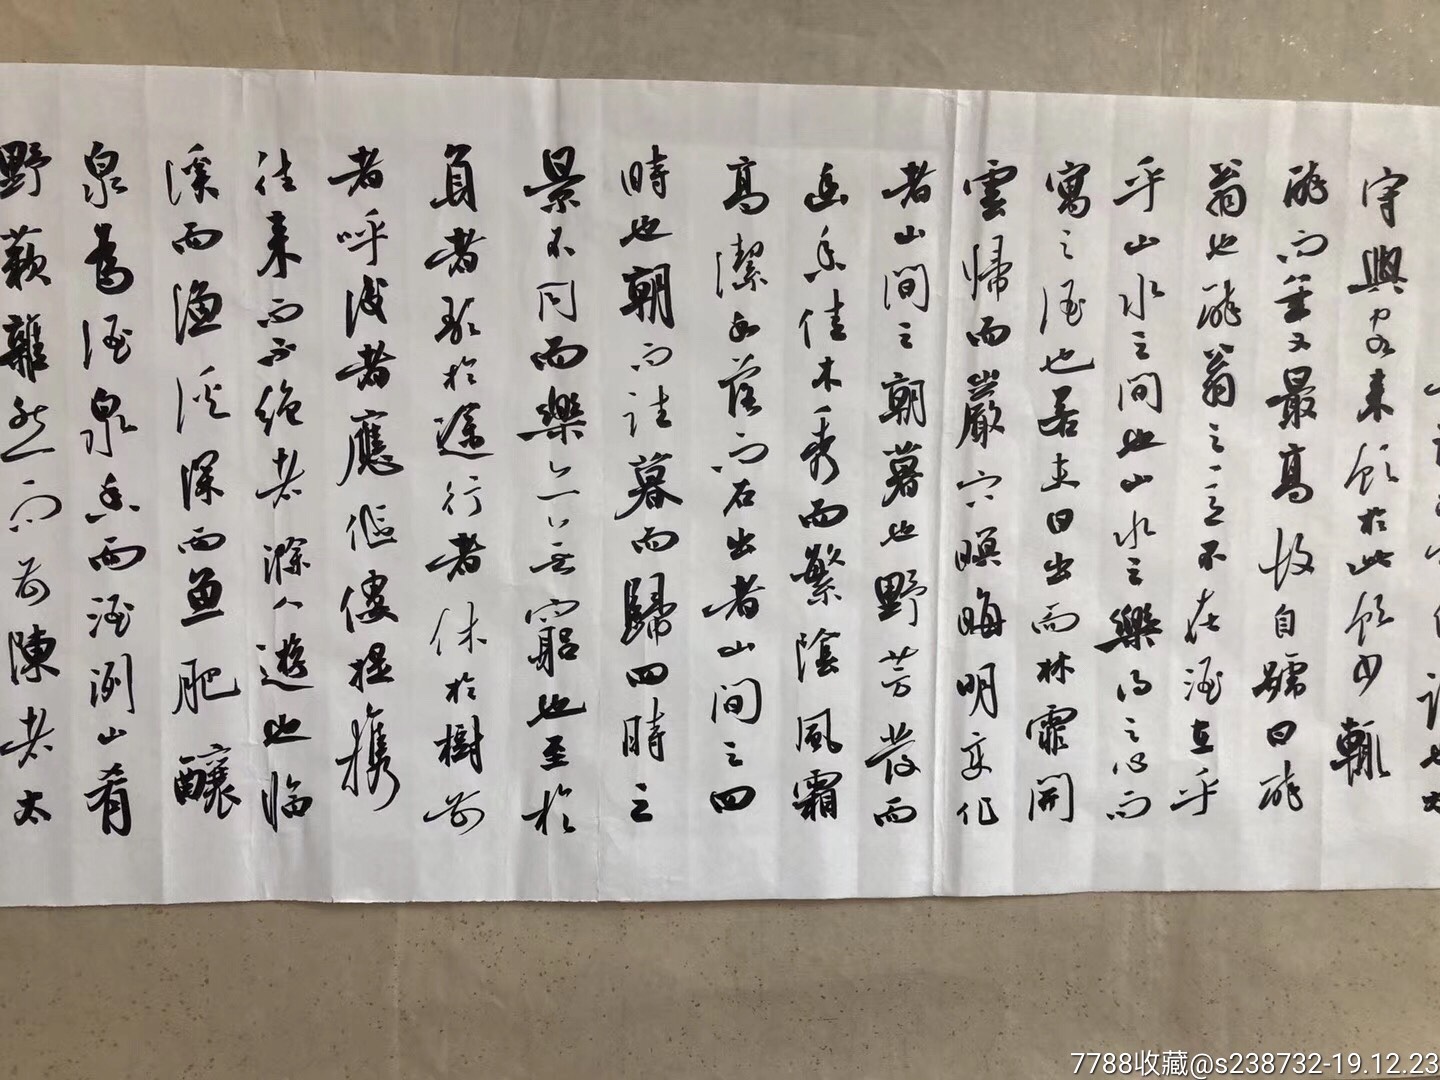 也太
守與客來飲於此飲少輒
醉而年又最高故自號曰醉
翁也醉翁之意不在酒在乎
乎山水之間也山水之樂得之心而
寓之酒也若夫日出而林霏開
雲歸而巖穴暝晦明变化
者山間之朝暮也野芳發而
幽香佳木秀而繁陰風霜
高潔水落而石出者山間之四
時也朝而往暮而歸四時之
景不同而樂亦無窮也至於
負者歌於途行者休於樹前
者呼後者應傴僂提攜
往來而不絕者滁人遊也臨
溪而漁溪深而魚肥釀
泉為酒泉香而酒洌山肴
野蔌雜然而前陳者太
7788收藏@s238732-19.12.23